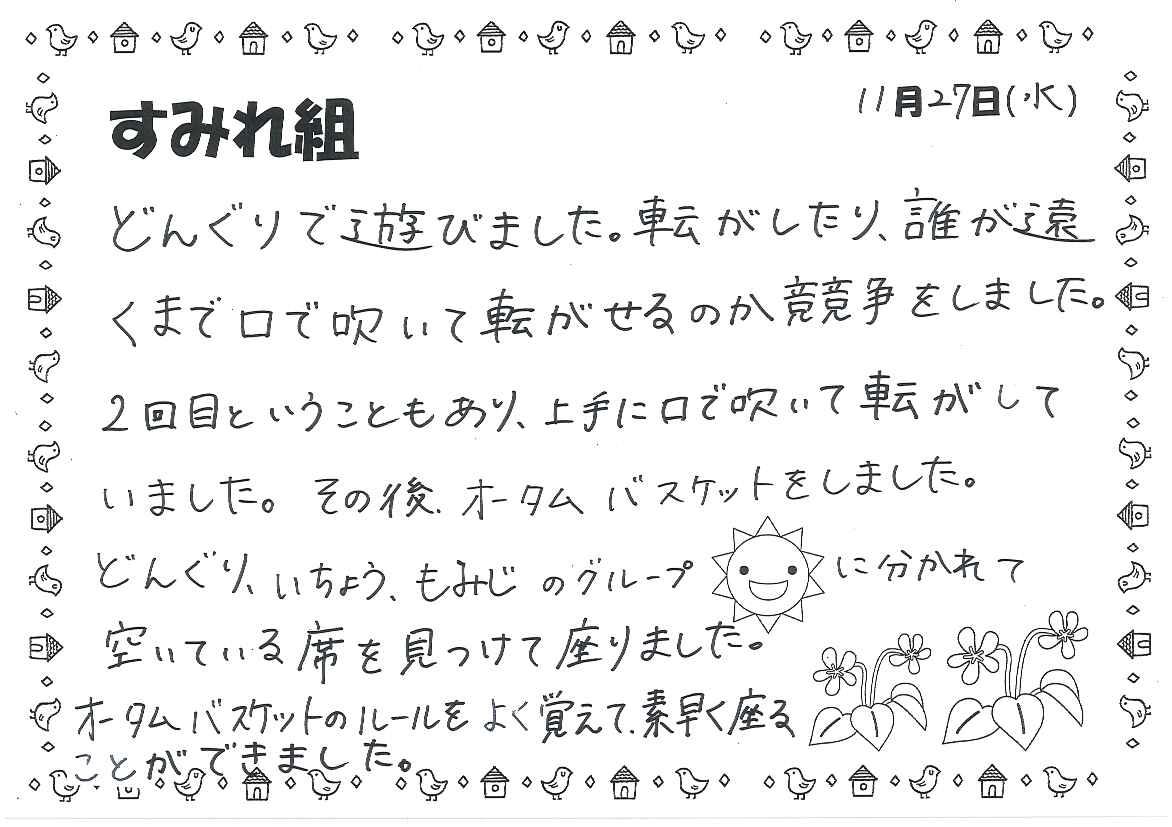 すみれ組
11月27日(水)
どんぐりで遊びました。転がしたり、誰が遠
くまで口で吹いて転がせるのか競争をしました。
2回目ということもあり、上手に口で吹いて転がして
いました。その後、オータムバスケットをしました。
どんぐり、いちょう、もみじのグループに分かれて
空いている席を見つけて座りました。
オータムバスケットのルールをよく覚えて、素早く座る
ことができました。